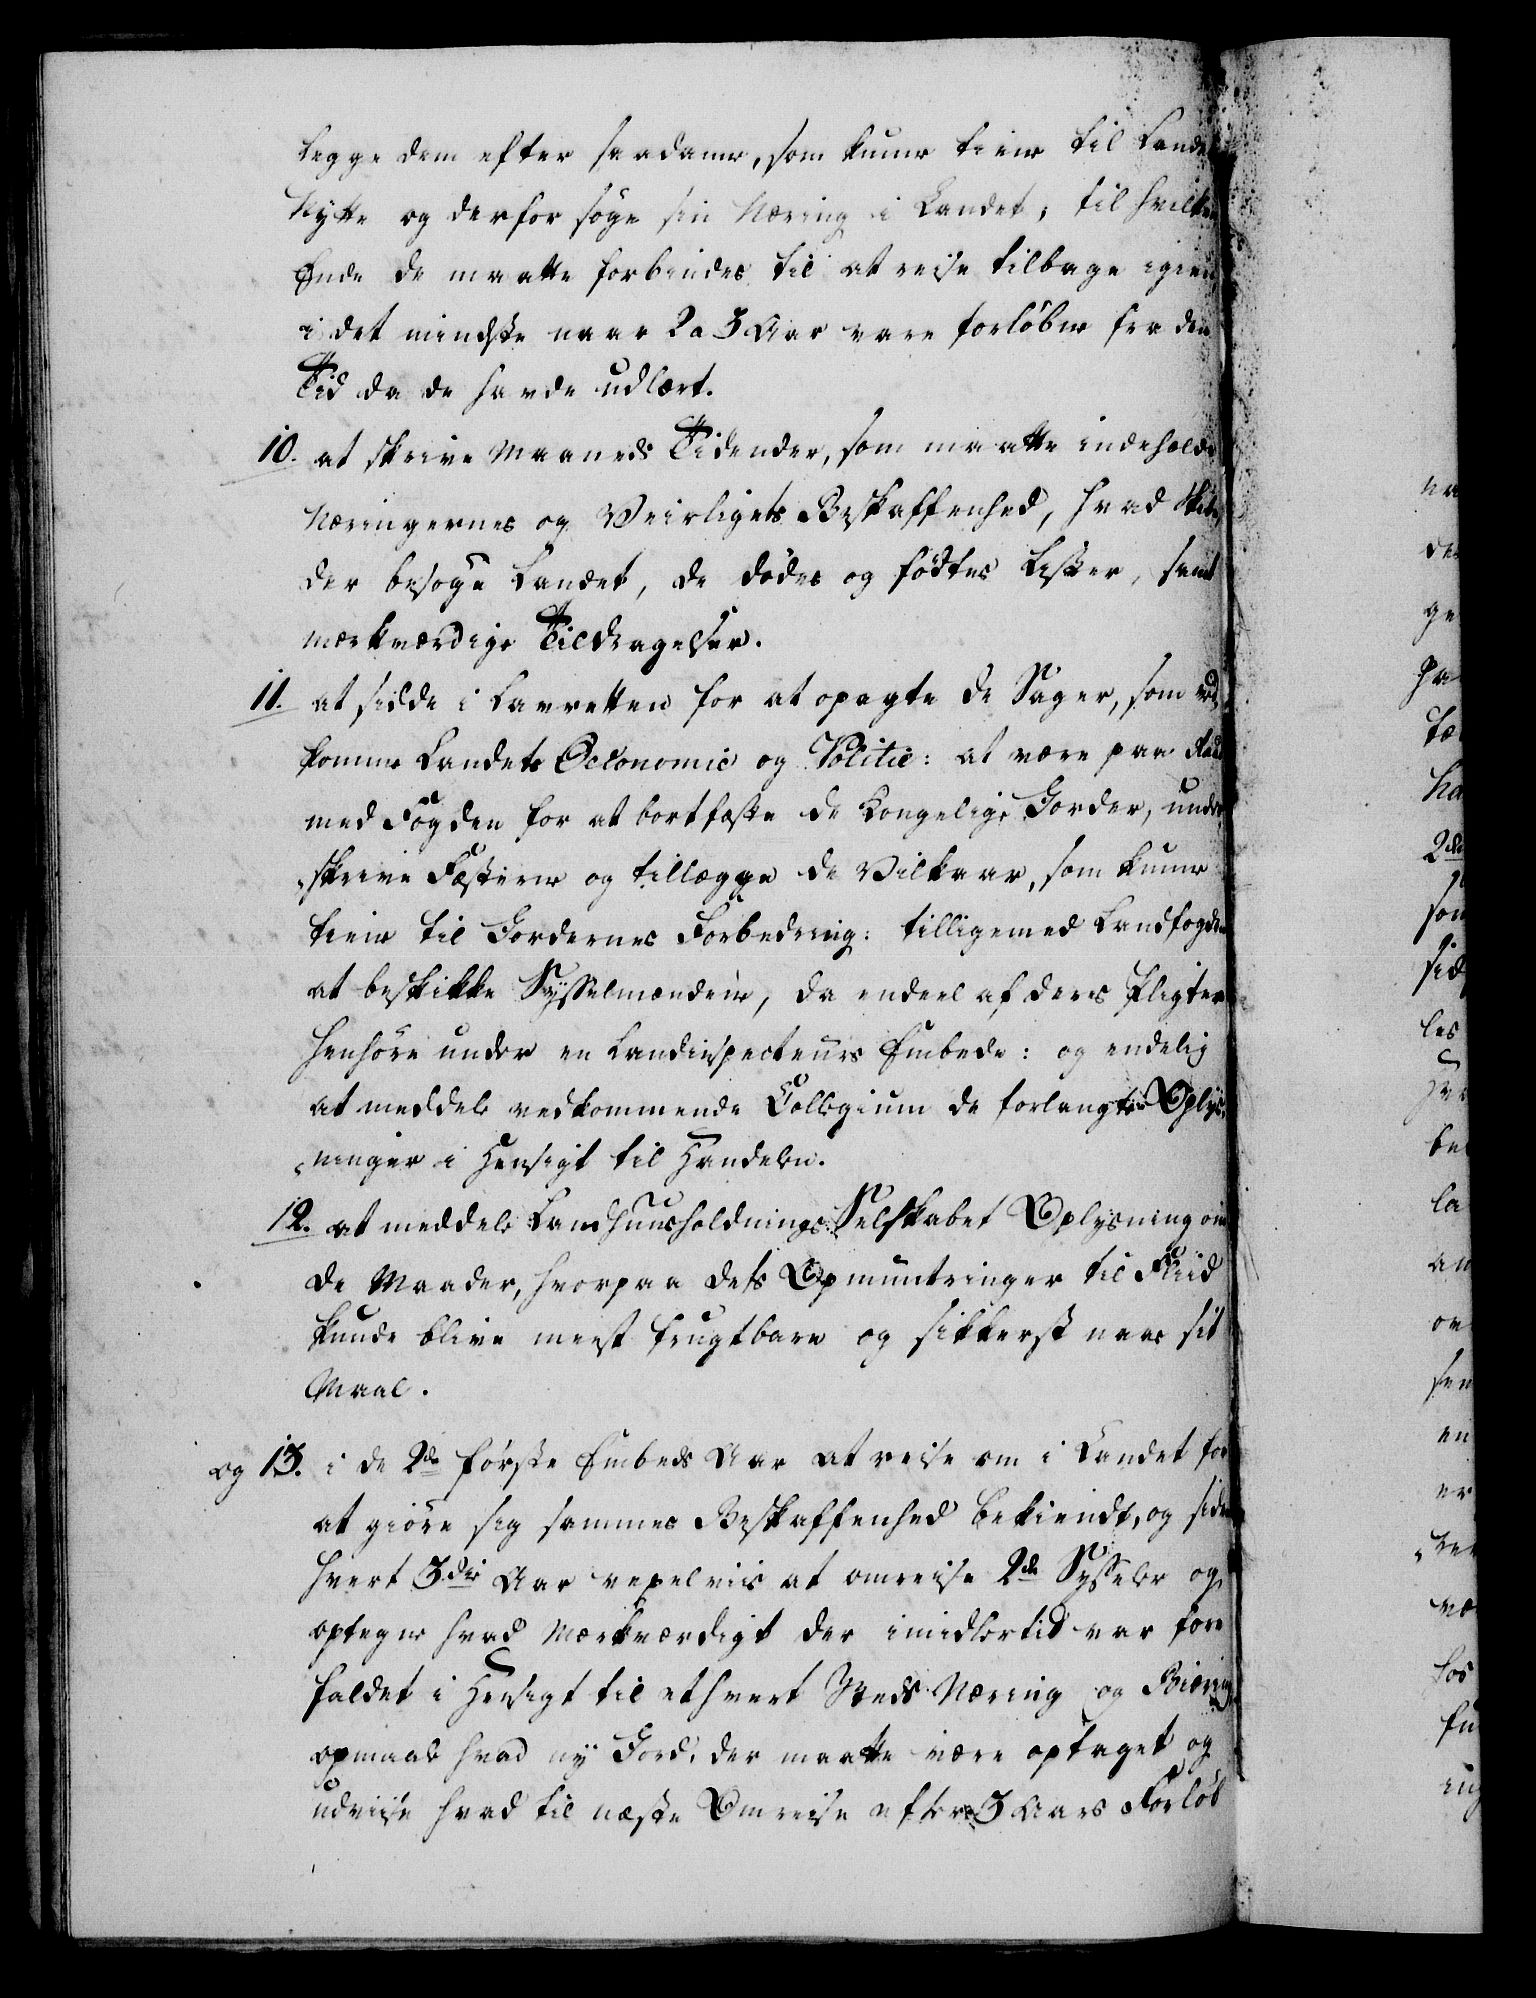 legge dem efter saadanne, som kunne tiene til Landets
Nytte og derfor søge sin Næring i Landet; til hvilken
Ende de maatte forbindes til at reise tilbage igien,
i det mindste naar 2 a 3 Aar vare forløbne fra den
Tid da de havde udlært.
10. at skrive Maaneds Tidender, som maatte indeholde
Næringernes og Veirligets Beskaffenhed, hvad Skibe
der besøge Landet, de dødes og fødtes Lister, samt
mærkværdige Tildragelser.
11. at sidde i Lavretten for at opagte de Sager, som ved¬
komme Landets Oeconomie og Politie: at være paa Raad
med Fogden for at bortfæste de Kongelige Jorder, under¬
„skrive Fæsterne og tillægge de Vilkaar, som kunne
tiene til Jordernes Forbedring: tilligemed Landfogden
at beskikke Sysselmændene, da endeel af deres Pligter
henhøre under en Landinspecteurs Embede: og endelig
at meddele vedkommende Collegium de forlangte Oplys¬
„ninger i Hensigt til Handelen.
12. at meddele Landhuusholdnings Selskabet Oplysning om
de Maader, hvorpaa dets Opmuntringer til Fliid
kunde blive meest frugtbare og sikkerst naae sit
Maal.
og 13. i de 2de første Embeds Aar at reise om i Landet for
at giøre sig sammes Beskaffenhed bekiendt, og siden
hvert 3die Aar vexelviis at omreise 2de Sysseler og
optegne hvad Mærkværdigt der imidlertid var fore
faldet i Hensigt til ethvert Steds Næring og
opmaale hvad ny Jord, der maatte være optaget og
udviise hvad til næste Omreise efter 3 Aars Forløb